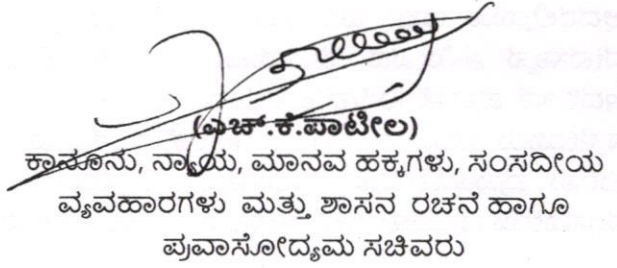 (ಎಚ್.ಕೆ.ಪಾಟೀಲ)
ಕಾನೂನು, ನ್ಯಾಯ, ಮಾನವ ಹಕ್ಕಗಳು, ಸಂಸದೀಯ
ವ್ಯವಹಾರಗಳು ಮತ್ತು ಶಾಸನ ರಚನೆ ಹಾಗೂ
ಪ್ರವಾಸೋದ್ಯಮ ಸಚಿವರು